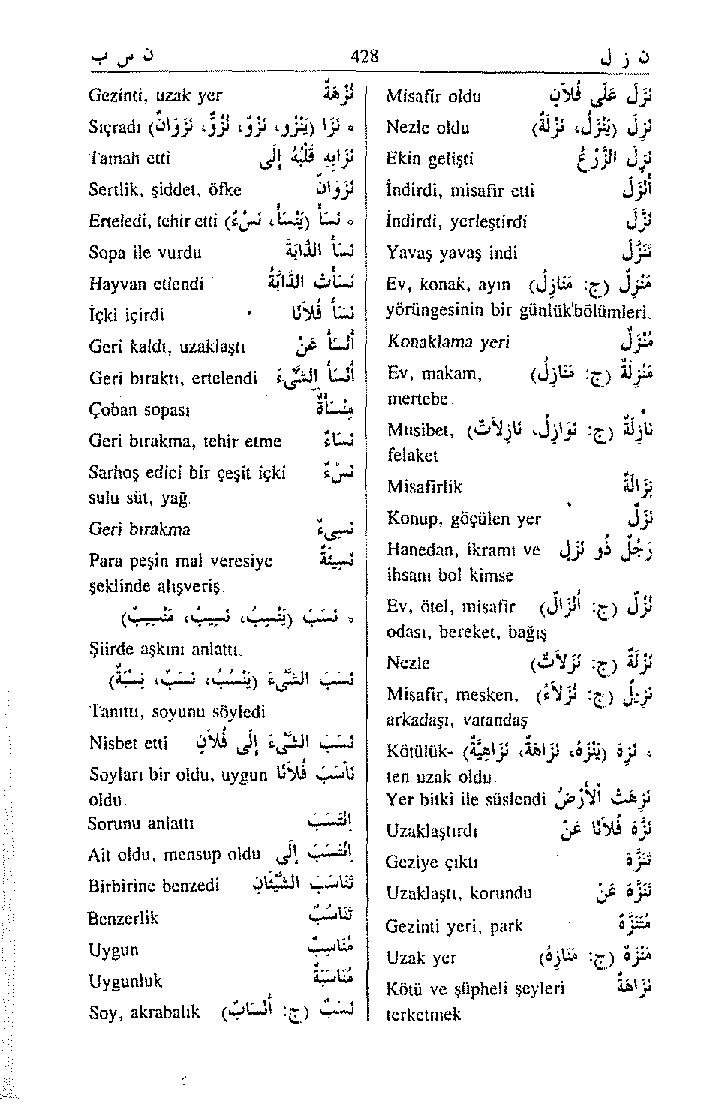 ن ز ل 428 ن س ب
Misafir oldu نَزَلَ عَلَى فُلاَنٍ
Nezle oldu نَزِلَ (يَنْزَلُ، نَزْلَةً)
Ekin gelişti نَزِلَ الزَّرْعُ
İndirdi, misafir etti أَنْزَلَ
İndirdi, yerleştirdi نَزَّلَ
Yavaş yavaş indi تَنَزَّلَ
Ev, konak, ayın مَنْزِلٌ (ج: مَنَازِلُ)
yörüngesinin bir günlük bölümleri.
Konaklama yeri مُنْزَلٌ
Ev, makam, مَنْزِلَةٌ (ج: مَنَازِلُ)
mertebe.
Musibet, نَازِلَةٌ (ج: نَوَازِلُ، نَازِلاَتٌ)
felaket
Misafirlik نِزَالَةٌ
Konup, göçülen yer نَزْلٌ
Hanedan, ikramı ve رَجُلٌ ذُو نَزَلٍ
ihsanı bol kimse
Ev, ötel, misafir نُزُلٌ (ج: أَنْزَالٌ)
odası, bereket, bağış
Nezle نَزْلَةٌ (ج: نَزَلاَتٌ)
Misafir, mesken, نَزِيلٌ (ج: نُزَلاَءُ)
arkadaşı, vatandaş
Kötülük- نَزِهَ (يَنْزَهُ، نَزَاهَةً، نَزَاهِيَةً)
ten uzak oldu.
Yer bitki ile süslendi نَزِهَتْ الأَرْضُ
Uzaklaştırdı نَزَّهَ فُلاَنًا عَنْ
Geziye çıktı تَنَزَّهَ
Uzaklaştı, korundu تَنَزَّهَ عَنْ
Gezinti yeri, park مُتَنَزَّهٌ
Uzak yer مَنْزَهٌ (ج: مَنَازِهُ)
Kötü ve şüpheli şeyleri نَزَاهَةٌ
terketmek
Gezinti, uzak yer نُزْهَةٌ
Sıçradı ° نَزَا (يَنْزُو، نَزْوٌ، نُزُوٌّ، نَزَوَانٌ)
Tamah etti نَزَا بِهِ قَلْبُهُ إِلَى
Sertlik, şiddet, öfke نَزَوَانٌ
Erteledi, tehir etti ° نَسَأَ (يَنْسَأُ، نَسْءٌ)
Sopa ile vurdu نَسَأَ الدَّابَّةَ
Hayvan etlendi نَسَأَتْ الدَّابَّةُ
İçki içirdi نَسَأَ فُلاَنًا
Geri kaldı, uzaklaştı أَنْسَأَ عَنْ
Geri bıraktı, ertelendi أَنْسَأَ الشَّيْءَ
Çoban sopası مِنْسَأَةٌ
Geri bırakma, tehir etme نَسَاءٌ
Sarhoş edici bir çeşit içki نَسْءٌ
sulu süt, yağ.
Geri bırakma نَسِيءٌ
Para peşin mal veresiye نَسِيئَةٌ
şeklinde alışveriş.
° نَسَبَ (يَنْسِبُ، نَسِيبٌ، مَنْسِبٌ)
Şiirde aşkını anlattı.
نَسَبَ الشَّيْءَ (يَنْسُبُ، نَسَبٌ، نِسْبَةً)
Tanıttı, soyunu söyledi
Nisbet etti نَسَبَ الشَّيْءَ إِلَى فُلاَنٍ
Soyları bir oldu, uygun نَاسَبَ فُلاَنًا
oldu.
Sorunu anlattı إِنْتَسَبَ
Ait oldu, mensup oldu إِنْتَسَبَ إِلَى
Birbirine benzedi تَنَاسَبَ الشَّيْئَانِ
Benzerlik تَنَاسُبٌ
Uygun مُنَاسِبٌ
Uygunluk مُنَاسَبَةٌ
Soy, akrabalık نَسَبٌ (ج: أَنْسَابٌ)